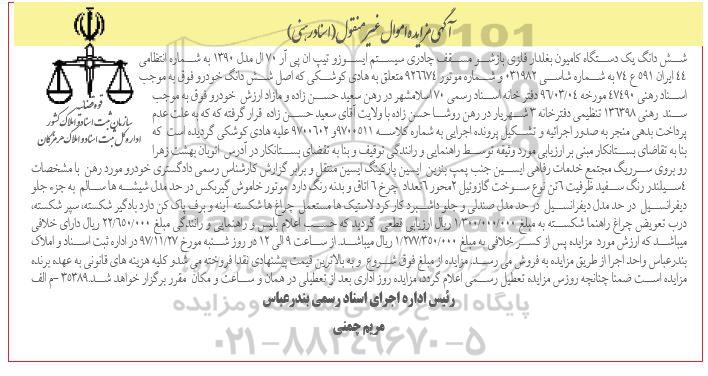 آگهی مزایده اموال غیرمنقول (اسناد رهنی)
قوه قضائیه
سازمان ثبت اسناد و املاک کشور
اداره کل ثبت اسناد و املاک هرمزگان
شش دانگ یک دستگاه کامیون بغلدار فلزی بازشو مسقف چادری سیستم ایسوزو تیپ ان پی آر ۷۰ ال مدل ۱۳۹۰ به شماره انتظامی
۴۴ ایران ۵۹۱ ع ۷۴ به شماره شاسی ۰۳۱۹۸۲ و شماره موتور ۹۲۶۶۷۴ متعلق به هادی کوشکی که اصل شش دانگ خودرو فوق به موجب
اسناد رهنی ۴۷۴۹۰ مورخه ۹۶/۰۳/۰۴ دفترخانه اسناد رسمی ۷۰ اسلامشهر در رهن سعید حسن زاده و مازاد ارزش خودرو فوق به موجب
سند رهنی ۱۳۶۳۹۸ تنظیمی دفترخانه ۳ شهریار در رهن روشا حسن زاده با ولایت آقای سعید حسن زاده قرار گرفته که که به علت عدم
پرداخت بدهی منجر به صدور اجرائیه و تشکیل پرونده اجرایی به شماره کلاسه ۹۷۰۰۵۱۱ و ۹۷۰۰۶۰۲ علیه هادی کوشکی گردیده است که
بنا به تقاضای بستانکار مبنی بر ارزیابی مورد وثیقه توسط راهنمایی و رانندگی توقیف و بنا به تقاضای بستانکار در آدرس اتوبان بهشت زهرا
رو بروی سرریگ مجتمع خدمات رفاهی ایسین جنب پمپ بنزین ایسین پارکینگ ایسین منتقل و برابر گزارش کارشناس رسمی دادگستری خودرو مورد رهن با مشخصات
۴ سیلندر رنگ سفید ظرفیت ۶ تن نوع سوخت گازوئیل ۲ محور ۶ تعداد چرخ ۶ اتاق و بدنه رنگ دارد موتور خاموش گیربکس در حد مدل شیشه ها سالم به جزء جلو
دیفرانسیل در حد مدل دیفرانسیل در حد مدل صندلی و جلو داشبرد کار کرد لاستیک ها مستعمل چراغ ها شکسته آینه و برف پاک کن دارد بادگیر شکسته، سپر شکسته،
درب تعویض چراغ راهنما شکسته به مبلغ ۱/۳۰۰/۰۰۰/۰۰۰ ریال ارزیابی قطعی گردید که حسب اعلام پلیس و راهنمایی و رانندگی مبلغ ۲۲/۶۵۰/۰۰۰ ریال دارای خلافی
میباشد که ارزش مورد مزایده پس از کسر خلافی به مبلغ ۱/۲۷۷/۳۵۰/۰۰۰ ریال میباشد. از ساعت ۹ الی ۱۲ در روز شنبه مورخ ۹۷/۱۱/۲۷ در اداره ثبت اسناد و املاک
بندرعباس واحد اجرا از طریق مزایده به فروش می رسد. مزایده از مبلغ فوق شروع و به بالاترین قیمت پیشنهادی نقدا فروخته می شد و کلیه هزینه های قانونی به عهده برنده
مزایده است ضمنا چنانچه روز مزایده تعطیل رسمی اعلام گردد مزایده روز اداری بعد از تعطیلی در همان و ساعت و مکان مقرر برگزار خواهد شد. ۳۵۳۸۹ - م الف
رئیس اداره اجرای اسناد رسمی بندرعباس
مریم چمنی
پایگاه اطلاع رسانی مناقصه و مزایده
۰۲۱-۸۸۳۴۹۶۷۰-۵